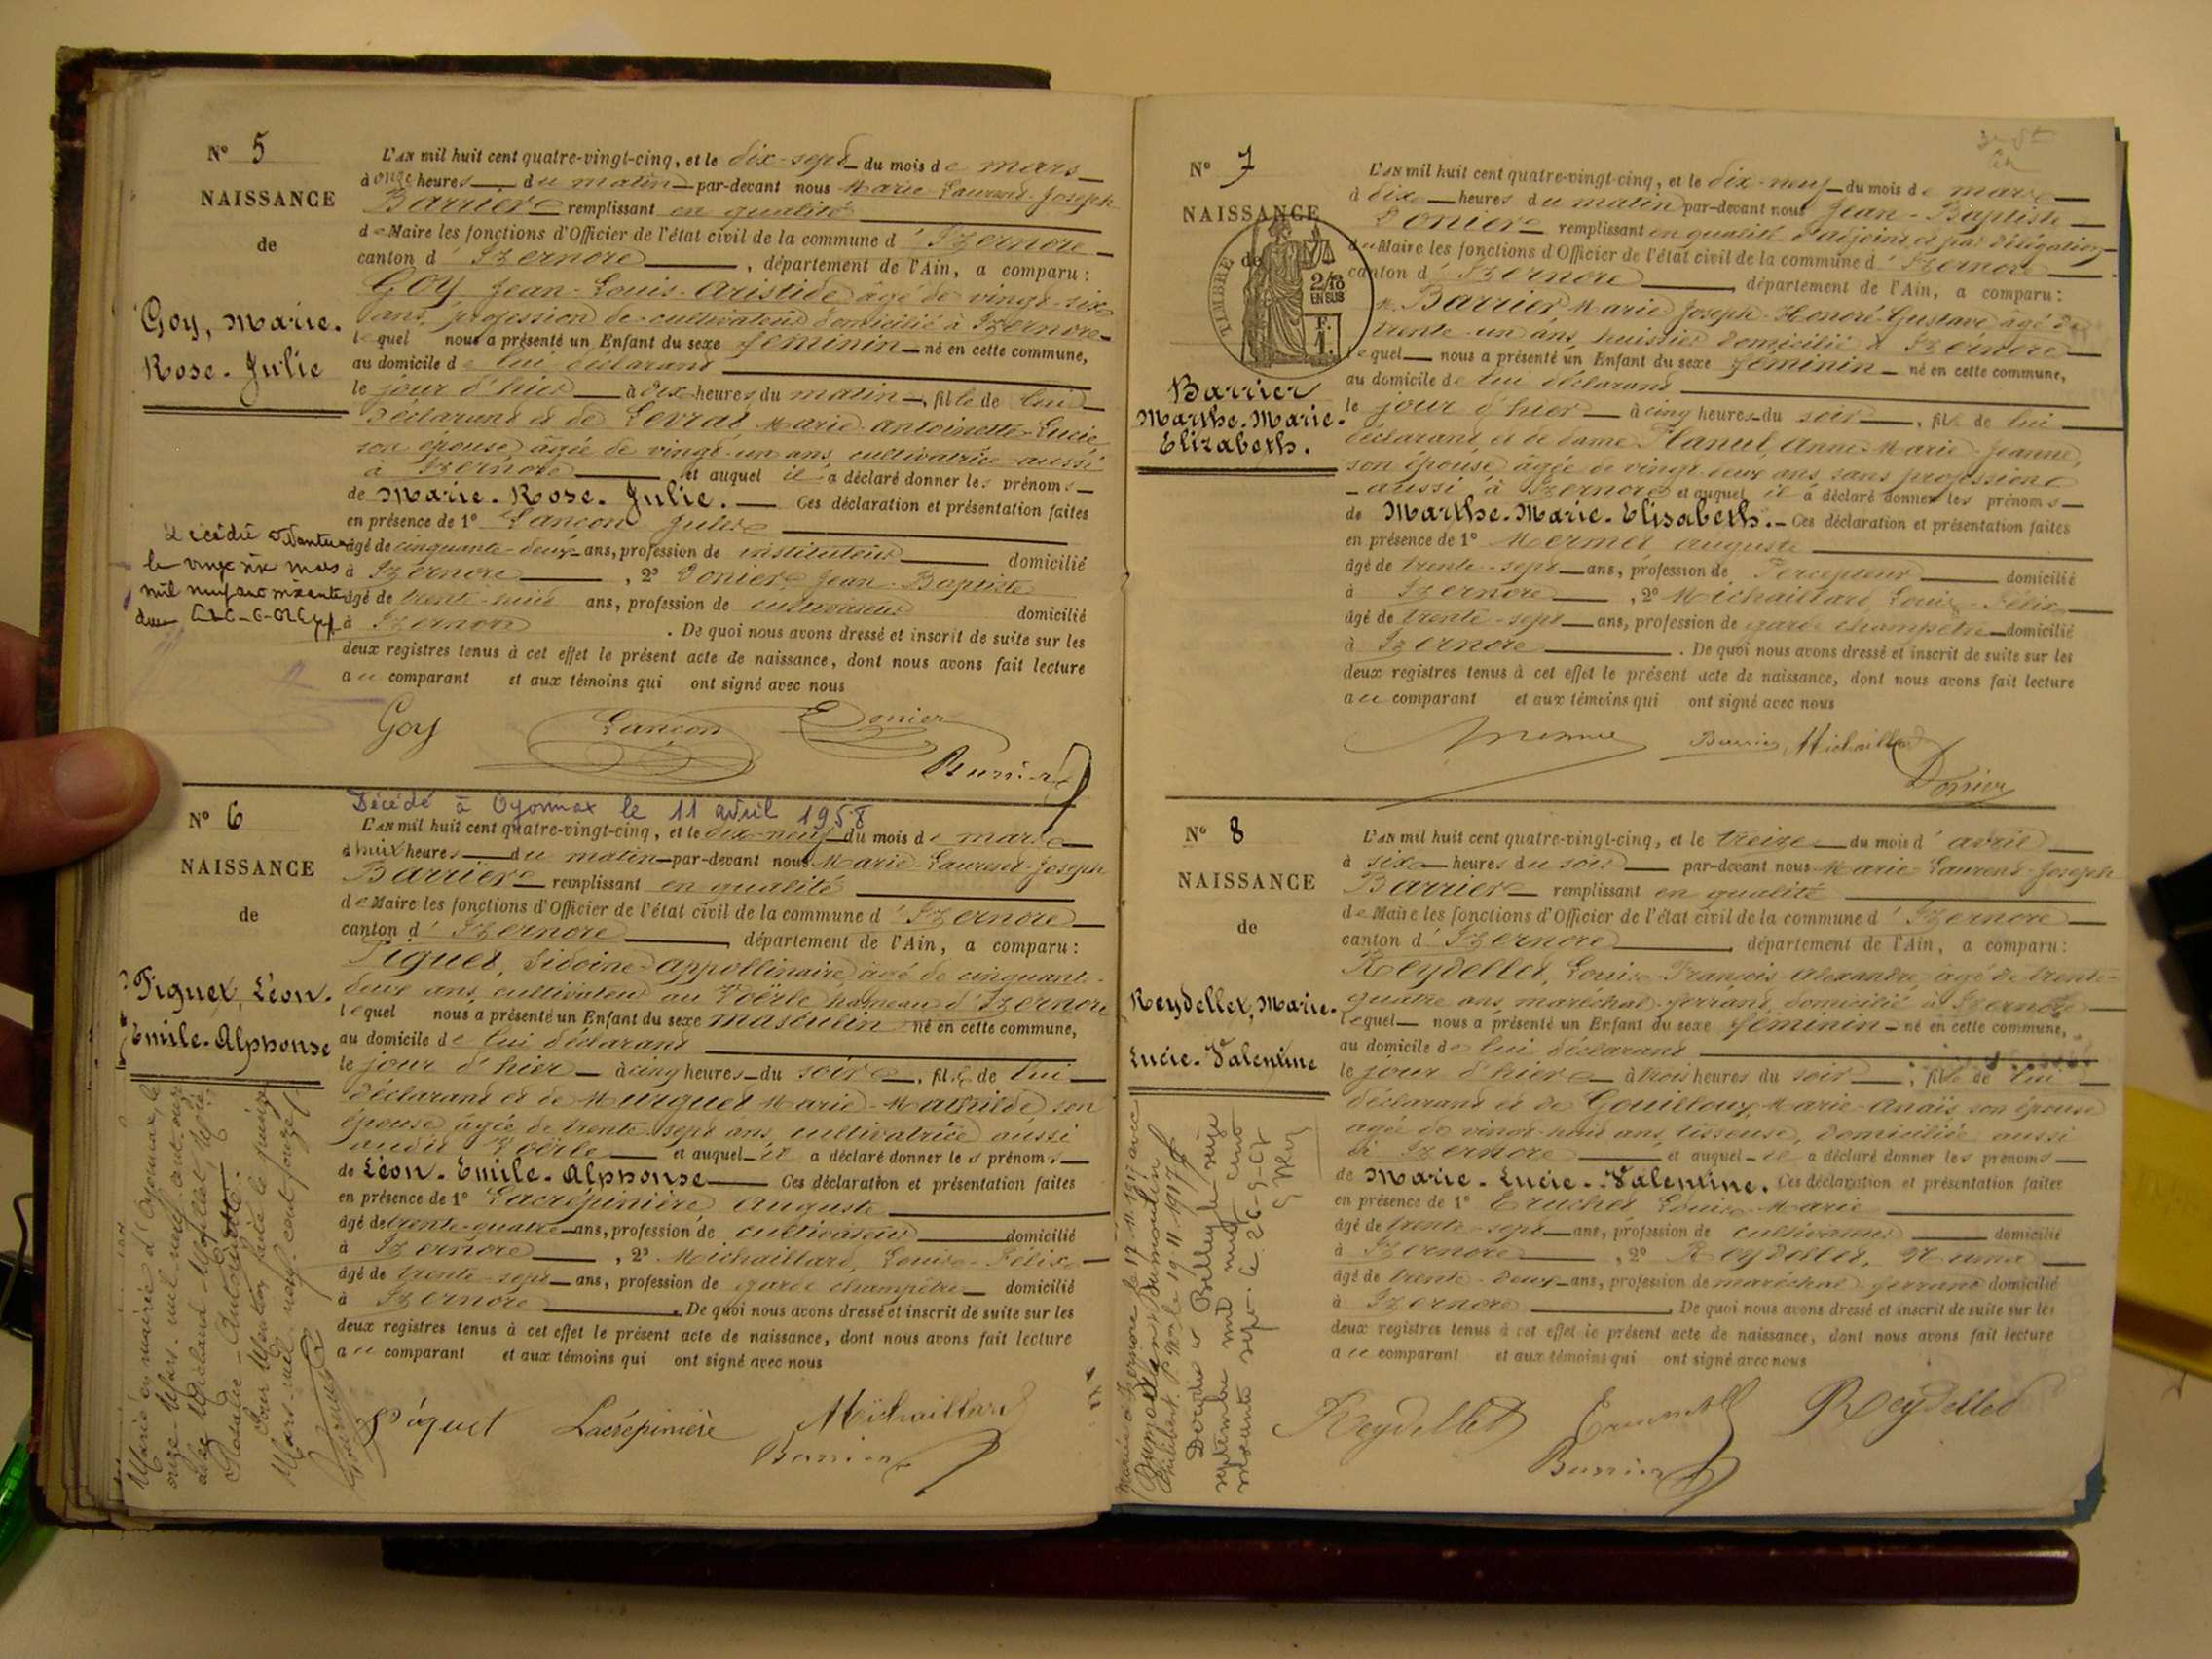 N° 5
NAISSANCE
de
Goy, Marie.
Rose. Julie
L'AN mil huit cent quatre-vingt-cinq, et le dix-sept du mois de mars
à onze heures du matin par-devant nous Marie Laurent Joseph
Barrier remplissant en qualité
de Maire les fonctions d'Officier de l'état civil de la commune d'Izernore
canton d'Izernore, département de l'Ain, a comparu :
Goy Jean-Louis-Aristide âgé de vingt-six
ans, profession de cultivateur domicilié à Izernore
lequel nous a présenté un Enfant du sexe féminin né en cette commune,
au domicile de lui déclarant
le jour d'hier à dix heures du matin, fille de lui
déclarant et de Levrat Marie Antoinette Lucie
son épouse âgée de vingt-un ans cultivatrice aussi
à Izernore et auquel il a déclaré donner les prénoms
de Marie. Rose. Julie. Ces déclaration et présentation faites
en présence de 1° Lançon Jules
âgé de cinquante-deux ans, profession de instituteur domicilié
à Izernore, 2° Donier Jean-Baptiste
âgé de trente-huit ans, profession de cultivateur domicilié
à Izernore. De quoi nous avons dressé et inscrit de suite sur les
deux registres tenus à cet effet le présent acte de naissance, dont nous avons fait lecture
au comparant et aux témoins qui ont signé avec nous
Goy Lançon Donier
Barrier
Décédé à Nantua
le vingt six mars
mil neuf cent soixante
N° 6
NAISSANCE
de
Piguet, Léon.
Emile. Alphonse
Décédé à Oyonnax le 11 avril 1958
L'AN mil huit cent quatre-vingt-cinq, et le dix-neuf du mois de mars
à huit heures du matin par-devant nous Marie-Laurent-Joseph
Barrier remplissant en qualité
de Maire les fonctions d'Officier de l'état civil de la commune d'Izernore
canton d'Izernore, département de l'Ain, a comparu :
Piguet, Sidoine-Appollinaire âgé de cinquante-
deux ans, cultivateur au Voërle hameau d'Izernore
lequel nous a présenté un Enfant du sexe masculin né en cette commune,
au domicile de lui déclarant
le jour d'hier à cinq heures du soir, fils de lui
déclarant et de Murguet Marie-Mathilde son
épouse âgée de trente-sept ans cultivatrice aussi
audit Voërle et auquel il a déclaré donner les prénoms
de Léon. Emile. Alphonse Ces déclaration et présentation faites
en présence de 1° Lacrépinière Auguste
âgé de trente-quatre ans, profession de cultivateur domicilié
à Izernore, 2° Michaillard, Louis-Félix
âgé de trente-sept ans, profession de garde champêtre domicilié
à Izernore. De quoi nous avons dressé et inscrit de suite sur les
deux registres tenus à cet effet le présent acte de naissance, dont nous avons fait lecture
au comparant et aux témoins qui ont signé avec nous
Piguet Lacrépinière Michaillard
Barrier
Marié en mairie d'Oyonnax, le
onze Mars mil neuf cent onze
avec Michaud
Pour Mention faite le quinze
Mars mil neuf cent
N° 7
NAISSANCE
de
TIMBRE
2/10
EN SUS
F.
1.
Barrier
Marthe. Marie.
Elizabeth.
L'AN mil huit cent quatre-vingt-cinq, et le dix-neuf du mois de mars
à dix heures du matin par-devant nous Jean-Baptiste
Donier remplissant en qualité d'adjoint et par délégation
du Maire les fonctions d'Officier de l'état civil de la commune d'Izernore
canton d'Izernore, département de l'Ain, a comparu :
M. Barrier, Marie Joseph Honoré Gustave âgé de
trente-un ans, huissier domicilié à Izernore
lequel nous a présenté un Enfant du sexe féminin né en cette commune,
au domicile de lui déclarant
le jour d'hier à cinq heures du soir, fille de lui
déclarant et de dame Hanut, Anne-Marie-Jeanne,
son épouse âgée de vingt-deux ans sans profession
aussi à Izernore et auquel il a déclaré donner les prénoms
de Marthe. Marie. Elisabeth. Ces déclaration et présentation faites
en présence de 1° Mermet Auguste
âgé de trente-sept ans, profession de Percepteur domicilié
à Izernore, 2° Michaillard Louis-Félix
âgé de trente-sept ans, profession de garde champêtre domicilié
à Izernore. De quoi nous avons dressé et inscrit de suite sur les
deux registres tenus à cet effet le présent acte de naissance, dont nous avons fait lecture
au comparant et aux témoins qui ont signé avec nous
Barrier Michaillard
Donier
N° 8
NAISSANCE
de
Reydellet, Marie.
Lucie. Valentine
L'AN mil huit cent quatre-vingt-cinq, et le treize du mois d'avril
à six heures du soir par-devant nous Marie-Laurent-Joseph
Barrier remplissant en qualité
de Maire les fonctions d'Officier de l'état civil de la commune d'Izernore
canton d'Izernore, département de l'Ain, a comparu :
Reydellet, Louis-François-Alexandre âgé de trente-
quatre ans, maréchal-ferrant, domicilié à Izernore
lequel nous a présenté un Enfant du sexe féminin né en cette commune,
au domicile de lui déclarant
le jour d'hier à trois heures du soir, fille de lui
déclarant et de Gouilloux, Marie-Anaïs son épouse
âgée de vingt-huit ans, tisseuse, domiciliée aussi
à Izernore et auquel il a déclaré donner les prénoms
de Marie. Lucie. Valentine. Ces déclaration et présentation faites
en présence de 1° Louis-Marie
âgé de trente-sept ans, profession de cultivateur domicilié
à Izernore, 2° Reydellet, Numa
âgé de trente-deux ans, profession de maréchal ferrant domicilié
à Izernore. De quoi nous avons dressé et inscrit de suite sur les
deux registres tenus à cet effet le présent acte de naissance, dont nous avons fait lecture
au comparant et aux témoins qui ont signé avec nous
Reydellet Reydellet
Barrier
Mariée à Izernore le 17.11.1917 avec
Philibert 19.11.1917
Décédée à Belley le seize
septembre mil neuf cent
soixante sept. le 26-9-67